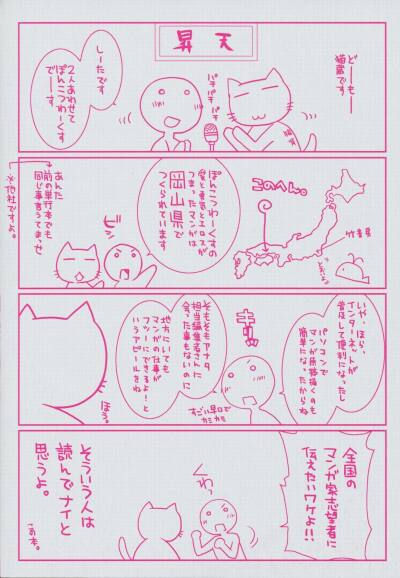 昇天
どーも
猫蔵です
パチ
パチ
パチ
パチ
しーたです
2人あわせて
ぽんこつわーくす
でーす
このへん。
竹島
ぽんこつわーくすの
愛と勇気とエロスが
つまったマンガは
岡山県で
つくられています
ビシ
あんた
前の単行本でも
同じ事言うてまっせ
※他社ですよ。
いや、ほら、
インターネットが
普及して便利になったし
パソコンで
マンガ原稿描くのも
簡単になったからね
キリッ
すごい早口で
カミカミ
そもそもアナタ
担当編集者さんに
会った事もないのに
地方にいても
マンガの仕事が
フツーにできるよ！と
いうアピールをね
ほう。
全国の
マンガ家志望者に
伝えたいワケよ!!
くわっ
そういう人は
読んでナイと
思うよ。